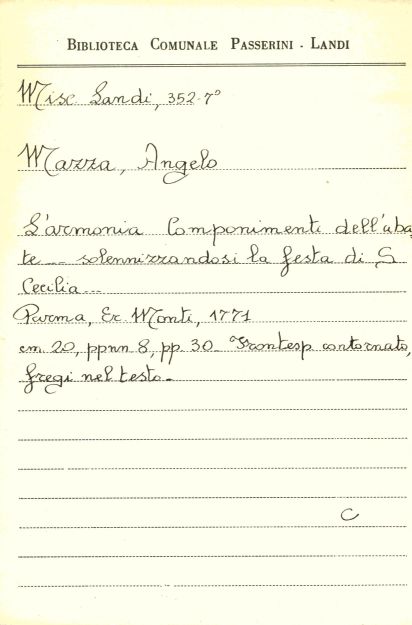 BIBLIOTECA COMUNALE PASSERINI - LANDI
Misc Landi, 352-7º
Mazza, Angelo
L'armonia Componimenti dell'aba
te... solennizzandosi la festa di S
Cecilia...
Parma, Er Monti, 1771
cm 20, ppnn 8, pp 30- Frontesp contornato,
fregi nel testo-
C